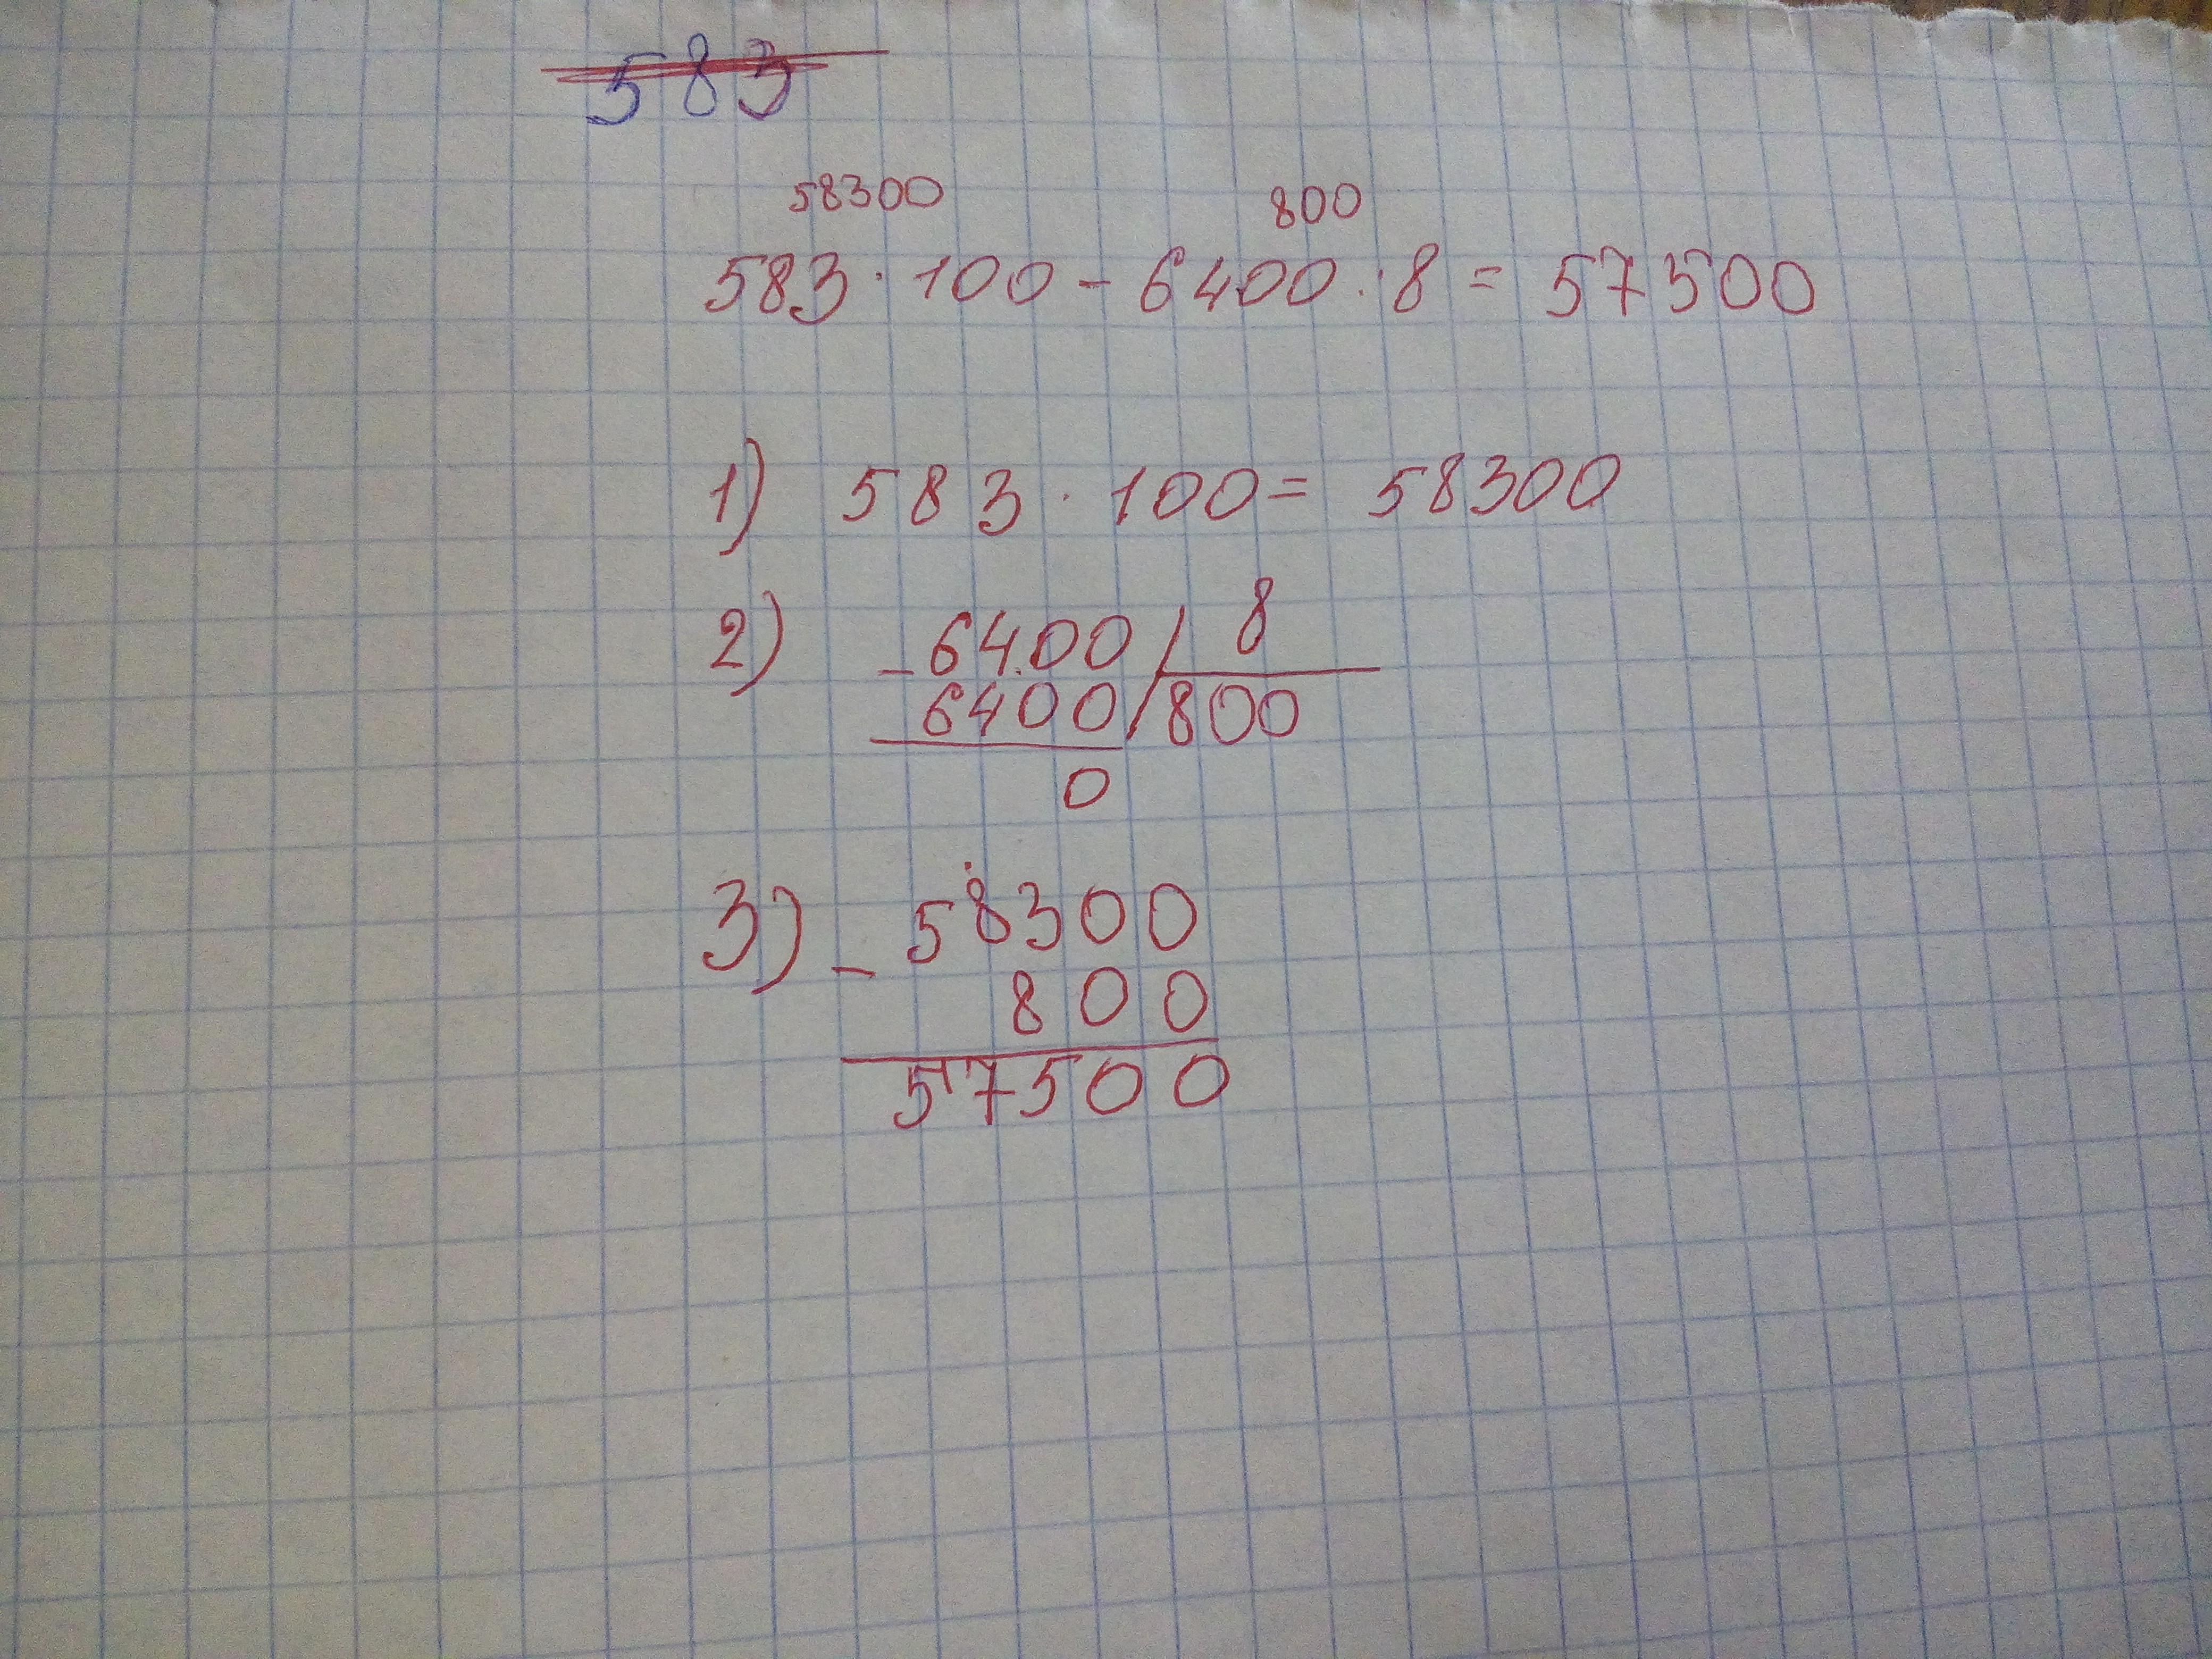 583
58300 800
583 · 100 - 6400 : 8 = 57500
1) 583 · 100 = 58300
2) - 6400 | 8
6400 | 800
0
3) - 58300
800
57500